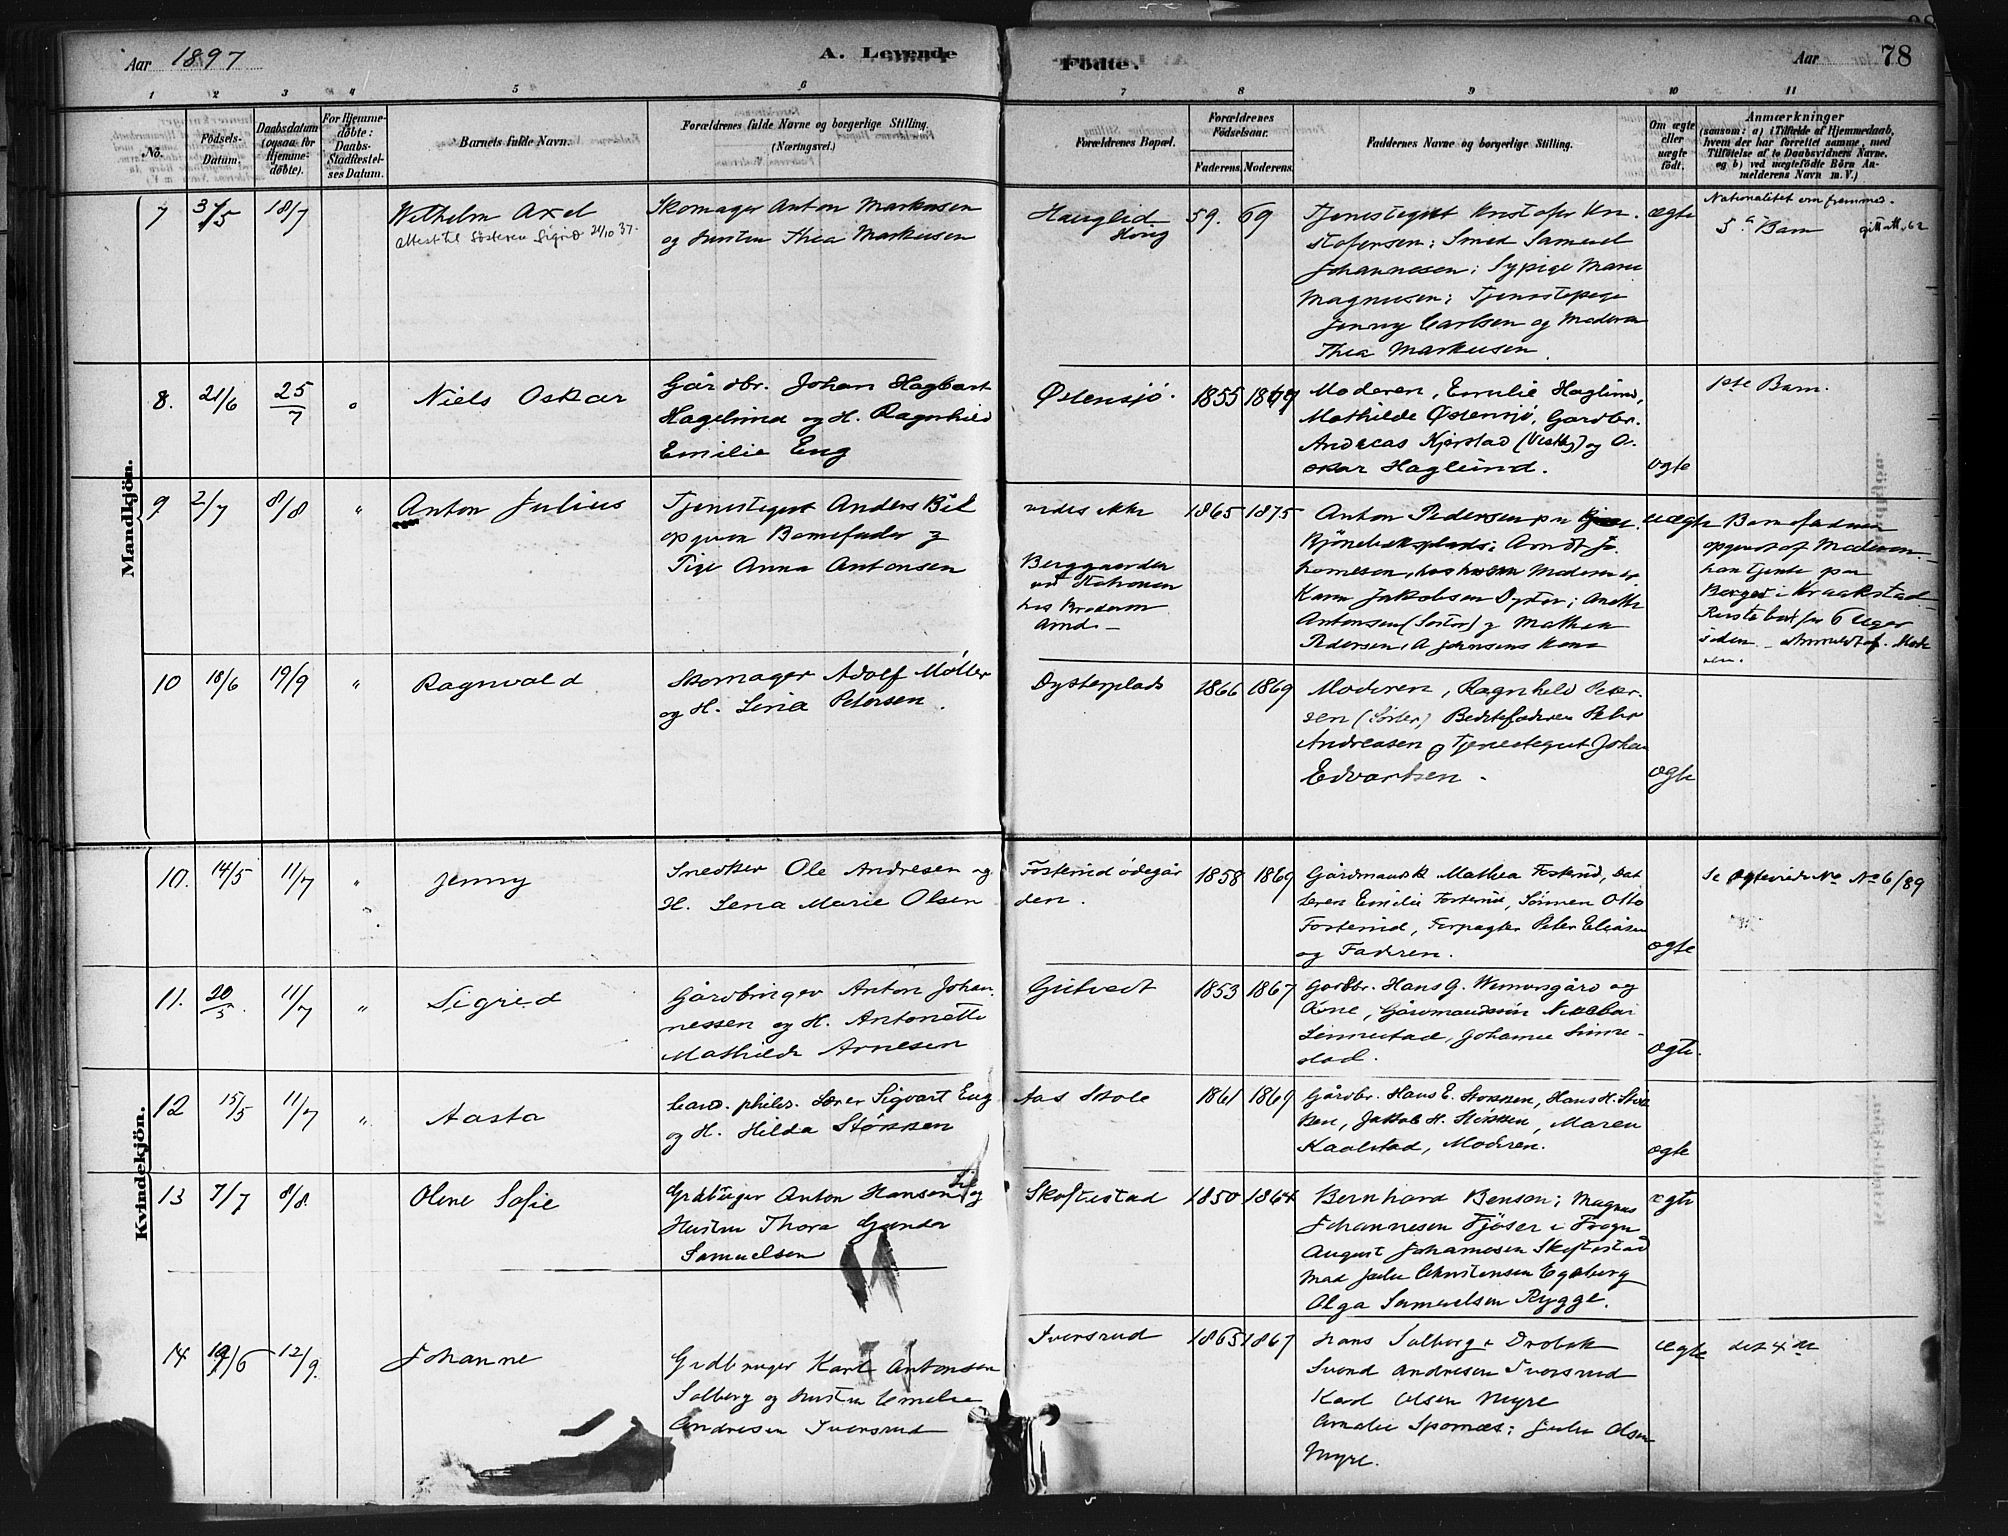 Aar 1897
A. Levende Fødte.
Aar 78
1 2 3 4 5 6 7 8 9 10 11
No.
Fødsels-Datum.
Daabsdatum (ogsaa for Hjemmedøbte).
For Hjemmedøbte: Daabs-Stadfæstelses Datum.
Barnets fulde Navn.
Forældrenes fulde Navne og borgerlige Stilling. (Næringsvei.)
Forældrenes Bopæl.
Forældrenes Fødselsaar.
Faderens. Moderens.
Faddernes Navne og borgerlige Stilling.
Om ægte eller uægte født.
Anmærkninger
(saasom: a) i Tilfælde af Hjemmedaab, hvem der har forrettet samme, med Tilføielse af to Daabsvidners Navne, og b) ved uægtefødte Børn Anmelderens Navn m. V.)
Mandkjön.
7 31/5 18/7 Wilhelm Axel
Attest til Søsteren Sigrid 24/10 37.
Skomager Anton Markusen
og Hustru Thea Markusen
Hauglid
59. 69
Tjenestegut Kristofer Kri-
stofersen; Smed Samuel
Johannesen; Sypige Marie
Magnusen; Tjenestepige
Jenny Carlsen og Moderen
Thea Markusen.
ægte
5te Barn
8. 21/6 25/7 " Niels Oskar
Gårdbr. Johan Hagbart
Hagelund og H. Ragnhild
Emilie Eng
Østensjø.
1855 1869
Moderen, Emilie Haglund,
Mathilde Østensjø, Gardbr.
Andreas Kjærstad (Vestby) og O-
skar Haglund.
ægte
1ste Barn.
9 2/7 8/8 " Anton Julius
Tjenestegut Anders
opgiven Barnefader og
Pige Anna Antonsen
vides ikke
Berggaarden
ved Stationen
hos Broderen
Arnd.
1865 1875
Anton Pedersen
Bjønebeksplads; Arndt Jo-
hannesen, hos hvem Moderen er
Karn Jakobsen Dyster; Anette
Antonsen (Søster) og Mathea
Pedersen, A Johnsens Kone
uægte
Barnefaderen
opgivet af Moderen
han tjente paa
Berger i Kraakstad
Reiste bort for 6 Uger
siden anmeldt af Mode
ren.
10 18/6 19/9 " Ragnvald
Skomager Adolf Møller
og H. Lina Petersen.
Dysterplads
1866 1869
Moderen, Ragnhild Peter-
sen (Søster) Bedstefaderen Peter
Andreasen og Tjenestegut Johan
Edvartsen.
ægte
Kvindekjön.
10. 14/5 11/7 " Jenny
Snedker Ole Andresen og
H. Lena Marie Olsen
Fosterud ødegår
den.
1858 1869
Gårdmandsk Mathea Fosterud, Dat
teren Emilie Fosterud, Sønnen Otto
Fosterud, Forpagter Peter Eliasen
og Faderen.
ægte
Se No 6/89
11. 20/5 11/7 " Sigrid
Gårdbruger Anton Johan-
nessen og H. Antonette
Mathilde Arnesen
Gutvedt
1853 1867
Gardbr. Hans G. Wamersgård og
Kone, Gårdmandssøn
Linnestad, Johanne Linne-
stad.
ægte.
12 15/5 11/7 " Aasta
Cand. philos. Lærer Sigvart Eng
og H. Hilda Størken
Aas Skole
1861 1869
Gårdbr. Hans E. Størken, Hans H. Stør
ken, Jakob H. Størken, Maren
Kaalstad, Moderen.
ægte
13 7/7 8/8. Olene Sofie
Grdbruger Anton Hansen og
Hustru Thora Gunda
Samuelsen
Skoftestad
1850 1864
Bernhard Benson; Magnus
Johannesen Fjøser i Frogn
August Johannesen Skoftestad
Mad Julie Christensen Egeberg
Olga Samuelsen Rygge.
ægte
14 12/9. Johanne
Grdbruger Karl Antonsen
Solberg og Hustru Emelie
Andresen Iversrud
Iversrud
1865 1867
Hans Solberg i Drøbak
Svend Andresen Iversrud
Karl Olsen Myre
Amalie Spornæs; Julie Olsen
Myre.
ægte
det 4de